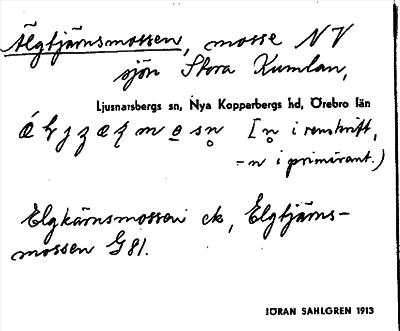 Älgtjärnsmossen, mosse NV
sjön Stora Kumlan,
Ljusnarsbergs sn, Nya Kopparbergs hd, Örebro län
[n̥ i renskrift,
-n i primärant.)
Elgkärnsmossen ek, Elgtjärns-
mossen G 81.
JÖRAN SAHLGREN 1913